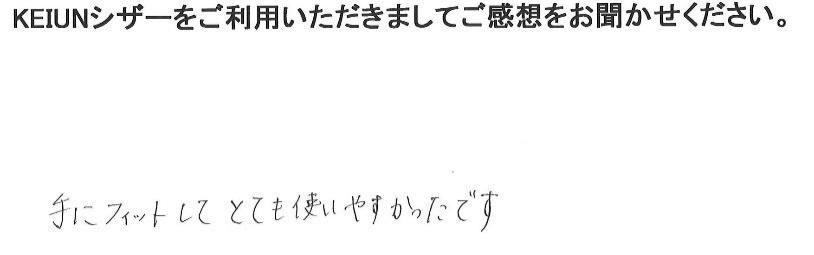 KEIUNシザーをご利用いただきましてご感想をお聞かせください。
手にフィットして とても使いやすかったです